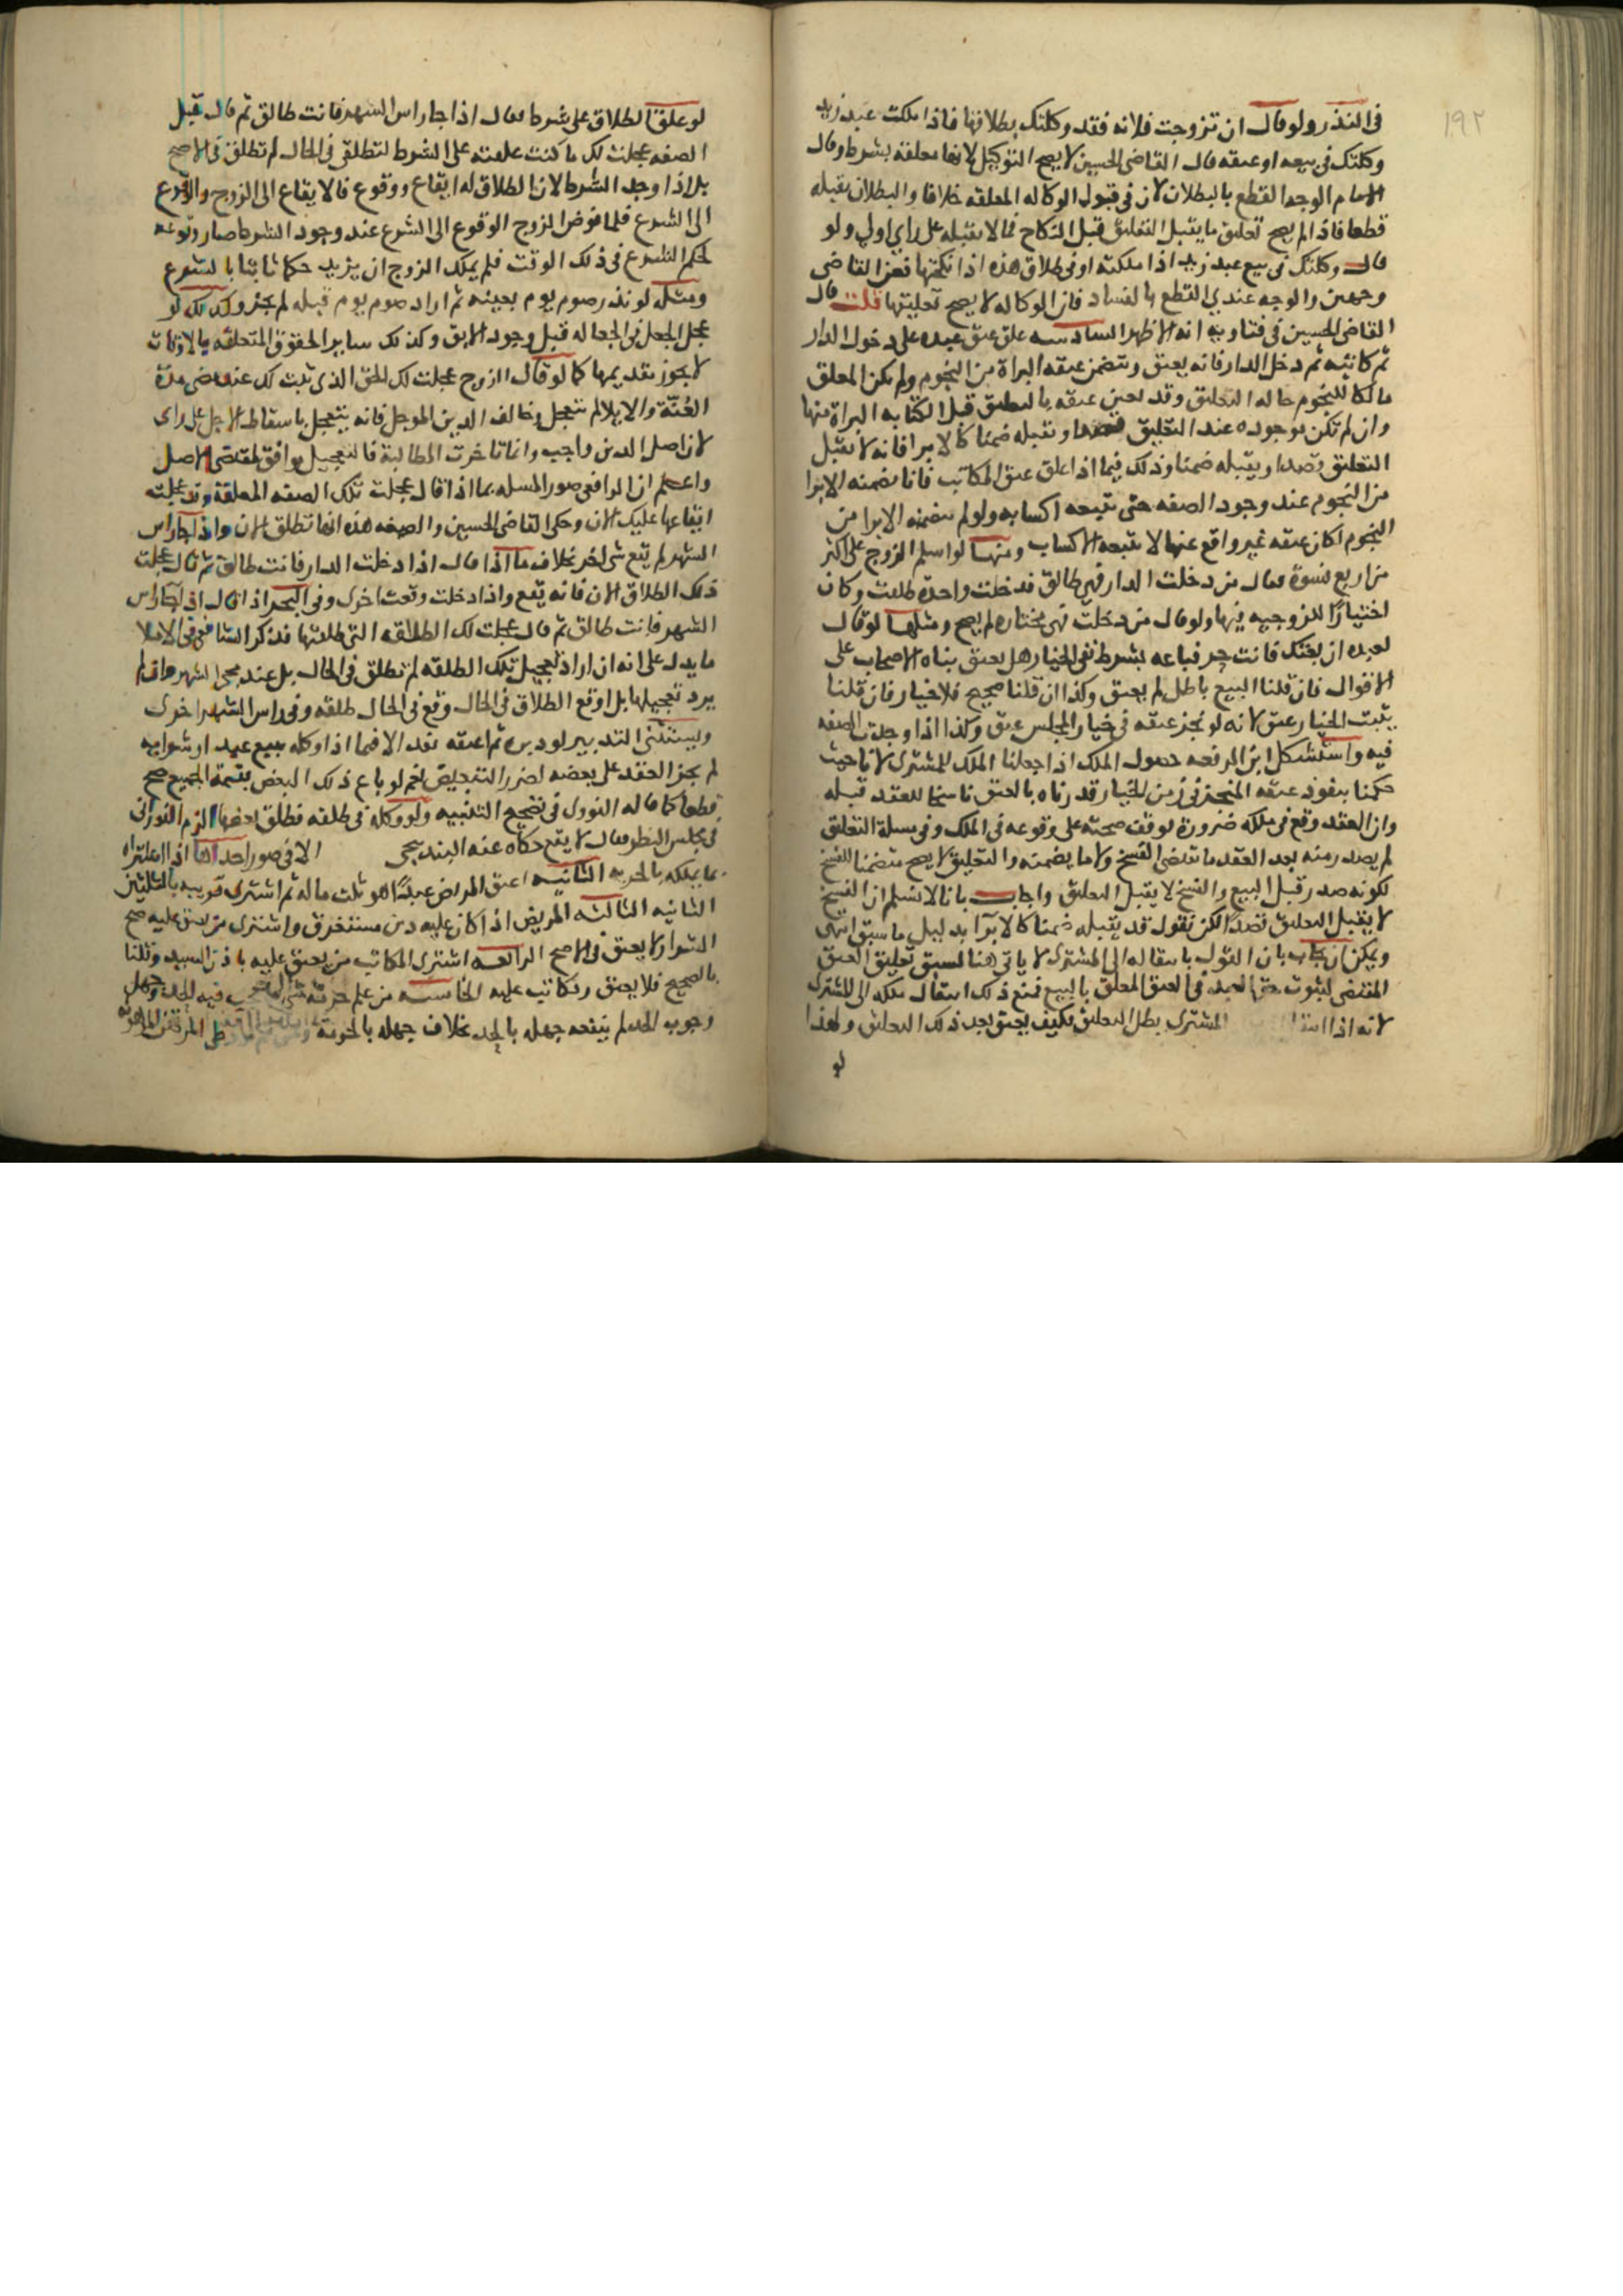 ١٩٢
فى النذر ولو قال ان تزوجت فلانه فقد وكلتك بطلاقها فاذا ملكت عبد زيد
وكلتك فى بيعه او عتقه قال القاضى الحسين لا يصح التوكيل لانها معلقه بشرط وقال
الامام الوجه القطع بالبطلان لان فى قبول الوكاله المعلقه خلافا والبطلان يقبله
قطعا فاذا لم يصح تعليق ما يقبل التعليق قبل النكاح فما لا يقبله على راي اولى ولو
قال وكلتك فى بيع عبد زيد اذا ملكته او فى طلاق هذه اذا نكحتها فعن القاضى
وجهين والوجه عندي القطع بالفساد فان الوكاله لا يصح تعليقها قلت قال
القاضى الحسين فى فتاويه انه الاظهر السادسه علق عتق عبده على دخول الدار
ثم كاتبه ثم دخل الدار فانه يعتق ويتضمن عتقه البراة من النجوم ولم يكن المعلق
مالكا للنجوم حاله التعليق وقد تعين عتقه بالتعليق قبل الكتابه البراة منها
وان لم تكن موجوده عند التعليق وتقبله ضمنا كالابرا فانه لا يقبل
التعليق قصدا ويقبله ضمنا وذلك فيما اذا علق عتق المكاتب فانا نضمنه الابرا
من النجوم عند وجود الصفه حتى تتبعه اكسابه ولو لم نضمنه الابرا من
النجوم لكان عتقه غير واقع عنها لا تتبعه الاكساب ومنها لو اسلم الزوج على اكثر
من اربع نسوة فقال من دخلت الدار فهى طالق فدخلت واحدة طلقت وكان
اختيارًا للزوجيه فيها ولو قال من دخلت فهى مختاره لم يصح ومثلها لو قال
لعبده ان بعتك فانت حر فباعه بشرط نفى الخيار هل يعتق بناه الاصحاب على
الاقوال فان قلنا البيع باطل لم يعتق وكذا ان قلنا صحيح فلا خيار فان قلنا
يثبت الخيار عتق لانه لو نجز عتقه فى خيار المجلس عتق وكذا اذا وجدت الصفه
فيه واستشكل ابن الرفعه حصول الملك اذا جعلنا الملك للمشترى لانا حيث
حكمنا بنفوذ عتقه المنجز فى زمن الخيار قدرناه بالعتق ناسخا للعقد قبله
وان العقد وقع فى ملكه ضرورة توقف صحته على وقوعه فى الملك وفى مسلة التعليق
لم يصدر منه بعد العقد ما يقتضى الفسخ ولا ما يضمنه والتعليق لا يصح متضمنا للفسخ
لكونه صدر قبل البيع والفسخ لا يقبل التعليق واجاب بانا لا نسلم ان الفسخ
لا يقبل التعليق قصدًا لكن نقول قد يقبله ضمنا كالابرآ بدليل ما سبق انتهى
ويمكن ان يجاب بان القول بانتقاله الى المشترى لا ياتى هنا لسبق تعليق العتق
المقتضى لثبوت حق العبد فى العتق المعلق بالبيع فمنع ذلك انتقال ملكه الى المشترى
لانه اذا المشترى بطل التعليق فكيف يعتق بعد ذلك التعليق ولهذا
لو
لو علق الطلاق على شرط فقال اذا جا راس الشهر فانت طالق ثم قال قبل
الصفه عجلت لك ما كنت علقته على الشرط لتطلقى فى الحال لم تطلق فى الاصح
بل اذا وجد الشرط لان الطلاق له ايقاع ووقوع فالايقاع الى الزوج والوقوع
الى الشرع فلما فوض الزوج الوقوع الى الشرع عند وجود الشرط صار وقوعه
لحكم الشرع فى ذلك الوقت فلم يملك الزوج ان يزيد حكما ثابتا بالشرع
ومثله لو نذر صوم يوم بعينه ثم اراد صوم يوم قبله لم يجز وكذلك لو
عجل الجعل فى الجعاله قبل وجود الابق وكذلك ساير الحقوق المتعلقه بالاوقات
لا يجوز تقديمها كما لو قال الزوج عجلت لك الحق الذى ثبت لك عند مضى مدة
العُنّة والايلا لم يتعجل وخالف الدين الموجل فانه يتعجل باسقاط الاجل على راى
لان اصل الدين واجب وانما تاخرت المطالبة فالتعجيل يوافق لمقتضى الاصل
واعلم ان الرافعى صور المسله بما اذا قال عجلت تلك الصفه المعلقة وقد عجلت
ايقاعها عليك الان وحكى القاضى الحسين والصفه هذه انها تطلق الان واذا جا راس
الشهر لم يقع شى اخر بخلاف ما اذا قال اذا دخلت الدار فانت طالق ثم قال عجلت
ذلك الطلاق الان فانه يقع واذا دخلت وقعت اخرى وفى البحر اذا قال اذا جا راس
الشهر فانت طالق ثم قال عجلت لك الطلقه التى طلقتها فذكر الشافعى فى الاملا
ما يدل على انه ان اراد تعجيل تلك الطلقه لم تطلق فى الحال بل عند مجى الشهر وان لم
يرد تعجيلها بل اوقع الطلاق فى الحال وقع فى الحال طلقه وفى راس الشهر اخرى
ويستثنى التدبير لو دبره ثم اعتقه نفذ الا فيما اذا وكله ببيع عبد او شرا به
لم يجز العقد على بعضه لضرر التبعيض نعم لو باع ذلك البعض بقيمة الجميع صح
قطعا كما قاله النووى فى تصحيح التنبيه ولو وكله فى طلقه فطلق بعضها
فى مجلس النظر فقال لا يقع حكاه عنه البندنيجى الا فى صور احداها اذا
بما يملكه بالحريه الثانيه اعتق المريض عبدًا هو ثلث ماله ثم اشترى قريبه بالثلثين
الثانيه الثالثه المريض اذا كان عليه دين مستغرق واشترى من يعتق عليه صح
الشرا ولا يعتق فى الاصح الرابعه اشترى المكاتب من يعتق عليه باذن السيد وقلنا
بالصحيح فلا يعتق ويكاتب عليه الخامسه من علم حرمة شى فيه الحد وجهل
وجوب الحد لم ينفعه جهله بالحد بخلاف جهله بالحرمة